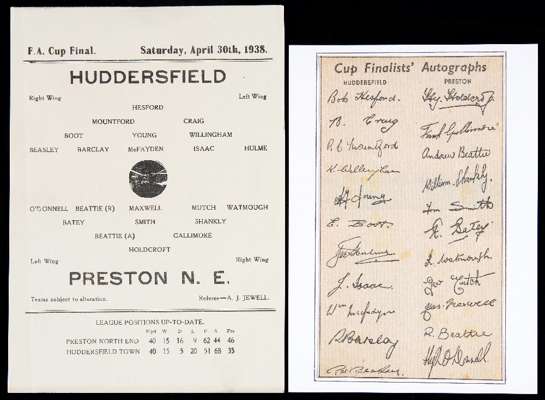 F.A. Cup Final. Saturday, April 30th, 1938.
HUDDERSFIELD
Right Wing Left Wing
HESFORD
MOUNTFORD CRAIG
BOOT YOUNG WILLINGHAM
BEASLEY BARCLAY McFAYDEN ISAAC HULME
O'DONNELL BEATTIE (R) MAXWELL MUTCH WATMOUGH
BATEY SMITH SHANKLY
BEATTIE (A) GALLIMORE
HOLDCROFT
Left Wing Right Wing
PRESTON N. E.
Teams subject to alteration. Referee—A. J. JEWELL.
LEAGUE POSITIONS UP-TO-DATE.
W D L F A Pts
PRESTON NORTH END 40 15 16 9 62 44 46
HUDDERSFIELD TOWN 40 15 3 20 51 68 35
Cup Finalists' Autographs
HUDDERSFIELD PRESTON
Bob Hesford. Hy. Holdcroft.
B. Craig Frank Gallimore
Mountford Andrew Beattie
K. Willingham William Shankly.
Young Tom Smith
E. Boot. R. Batey
J. Watmough
J. Isaac Geo Mutch
Wm McFadyen Jas. Maxwell
R Barclay R. Beattie
Hugh O'Donnell